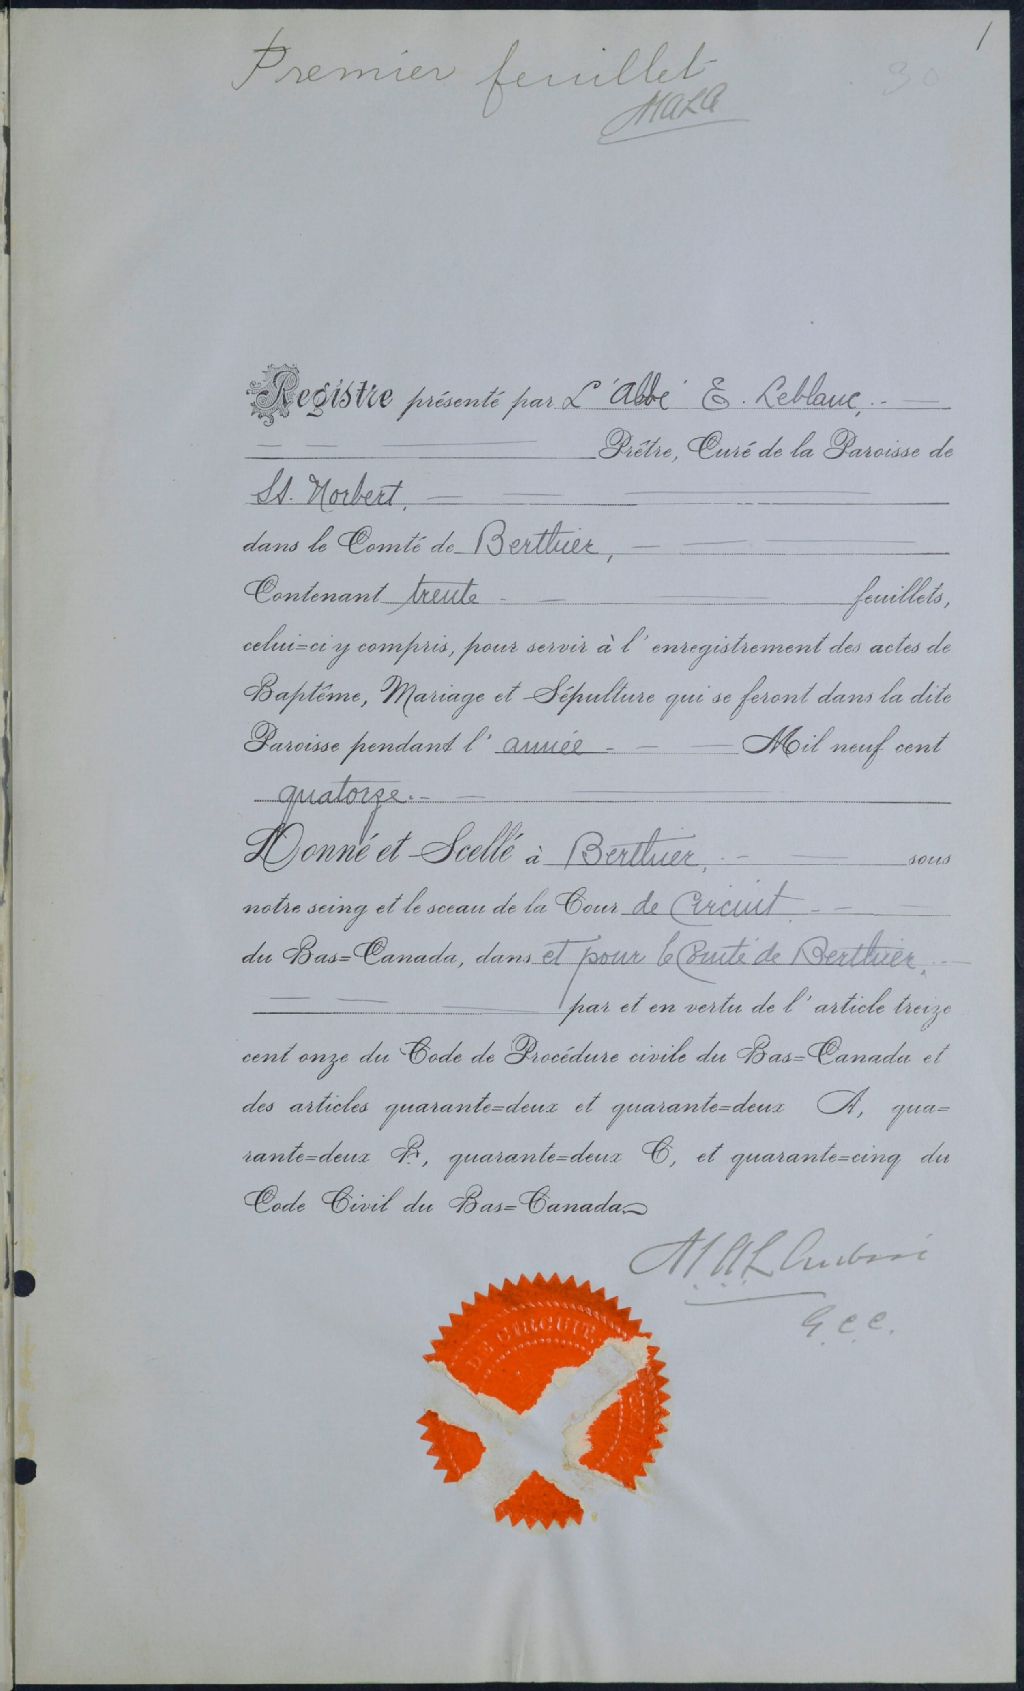 1
Premier feuillet
30
MALA
Registre présenté par L'Abbé E. Leblanc,
Prêtre, Curé de la Paroisse de
St. Norbert,
dans le Comté de Berthier,
Contenant trente feuillets,
celui=ci y compris, pour servir à l'enregistrement des actes de
Baptême, Mariage et Sépulture qui se feront dans la dite
Paroisse pendant l'année Mil neuf cent
quatorze.
Donné et Scellé à Berthier, sous
notre seing et le sceau de la Cour de Circuit
du Bas=Canada, dans et pour le Comté de Berthier,
par et en vertu de l'article treize
cent onze du Code de Procédure civile du Bas=Canada et
des articles quarante=deux et quarante=deux A, qua=
rante=deux B, quarante=deux C, et quarante=cinq du
Code Civil du Bas=Canada
M.A.L.
G.C.C.
DE CIRCUIT